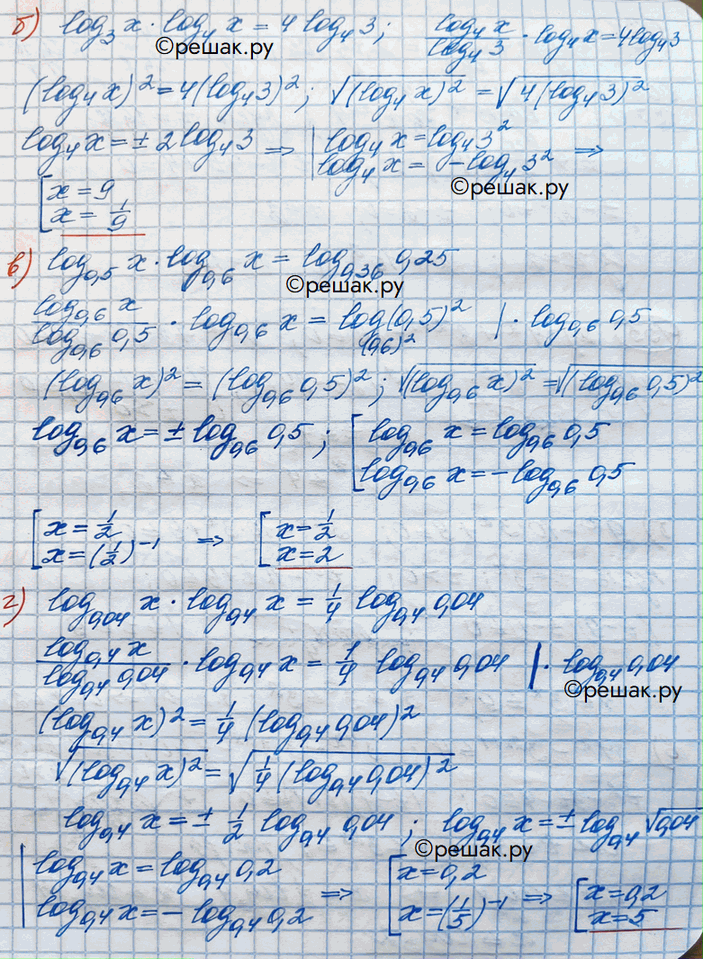 б) log₃ x · log₄ x = 4 log₄ 3; log₄ x / log₄ 3 · log₄ x = 4 log₄ 3
©решак.ру
(log₄ x)² = 4(log₄ 3)²; √(log₄ x)² = √4(log₄ 3)²
log₄ x = ± 2 log₄ 3 => | log₄ x = log₄ 3² =>
log₄ x = - log₄ 3²
©решак.ру
[ x = 9
x = 1/9
в) log₀,₅ x · log₀,₆ x = log₀,₃₆ 0,25
©решак.ру
log₀,₆ x / log₀,₆ 0,5 · log₀,₆ x = log(0,6)² (0,5)² | · log₀,₆ 0,5
(log₀,₆ x)² = (log₀,₆ 0,5)²; √(log₀,₆ x)² = √(log₀,₆ 0,5)²
log₀,₆ x = ± log₀,₆ 0,5; [ log₀,₆ x = log₀,₆ 0,5
log₀,₆ x = - log₀,₆ 0,5
[ x = 1/2 => [ x = 1/2
x = (1/2)⁻¹ x = 2
г) log₀,₀₄ x · log₀,₄ x = 1/4 log₀,₄ 0,04
log₀,₄ x / log₀,₄ 0,04 · log₀,₄ x = 1/4 log₀,₄ 0,04 | · log₀,₄ 0,04
©решак.ру
(log₀,₄ x)² = 1/4 (log₀,₄ 0,04)²
√(log₀,₄ x)² = √1/4 (log₀,₄ 0,04)²
log₀,₄ x = ± 1/2 log₀,₄ 0,04; log₀,₄ x = ± log₀,₄ √0,04
©решак.ру
| log₀,₄ x = log₀,₄ 0,2 => [ x = 0,2 => [ x = 0,2
log₀,₄ x = - log₀,₄ 0,2 x = (1/5)⁻¹ x = 5